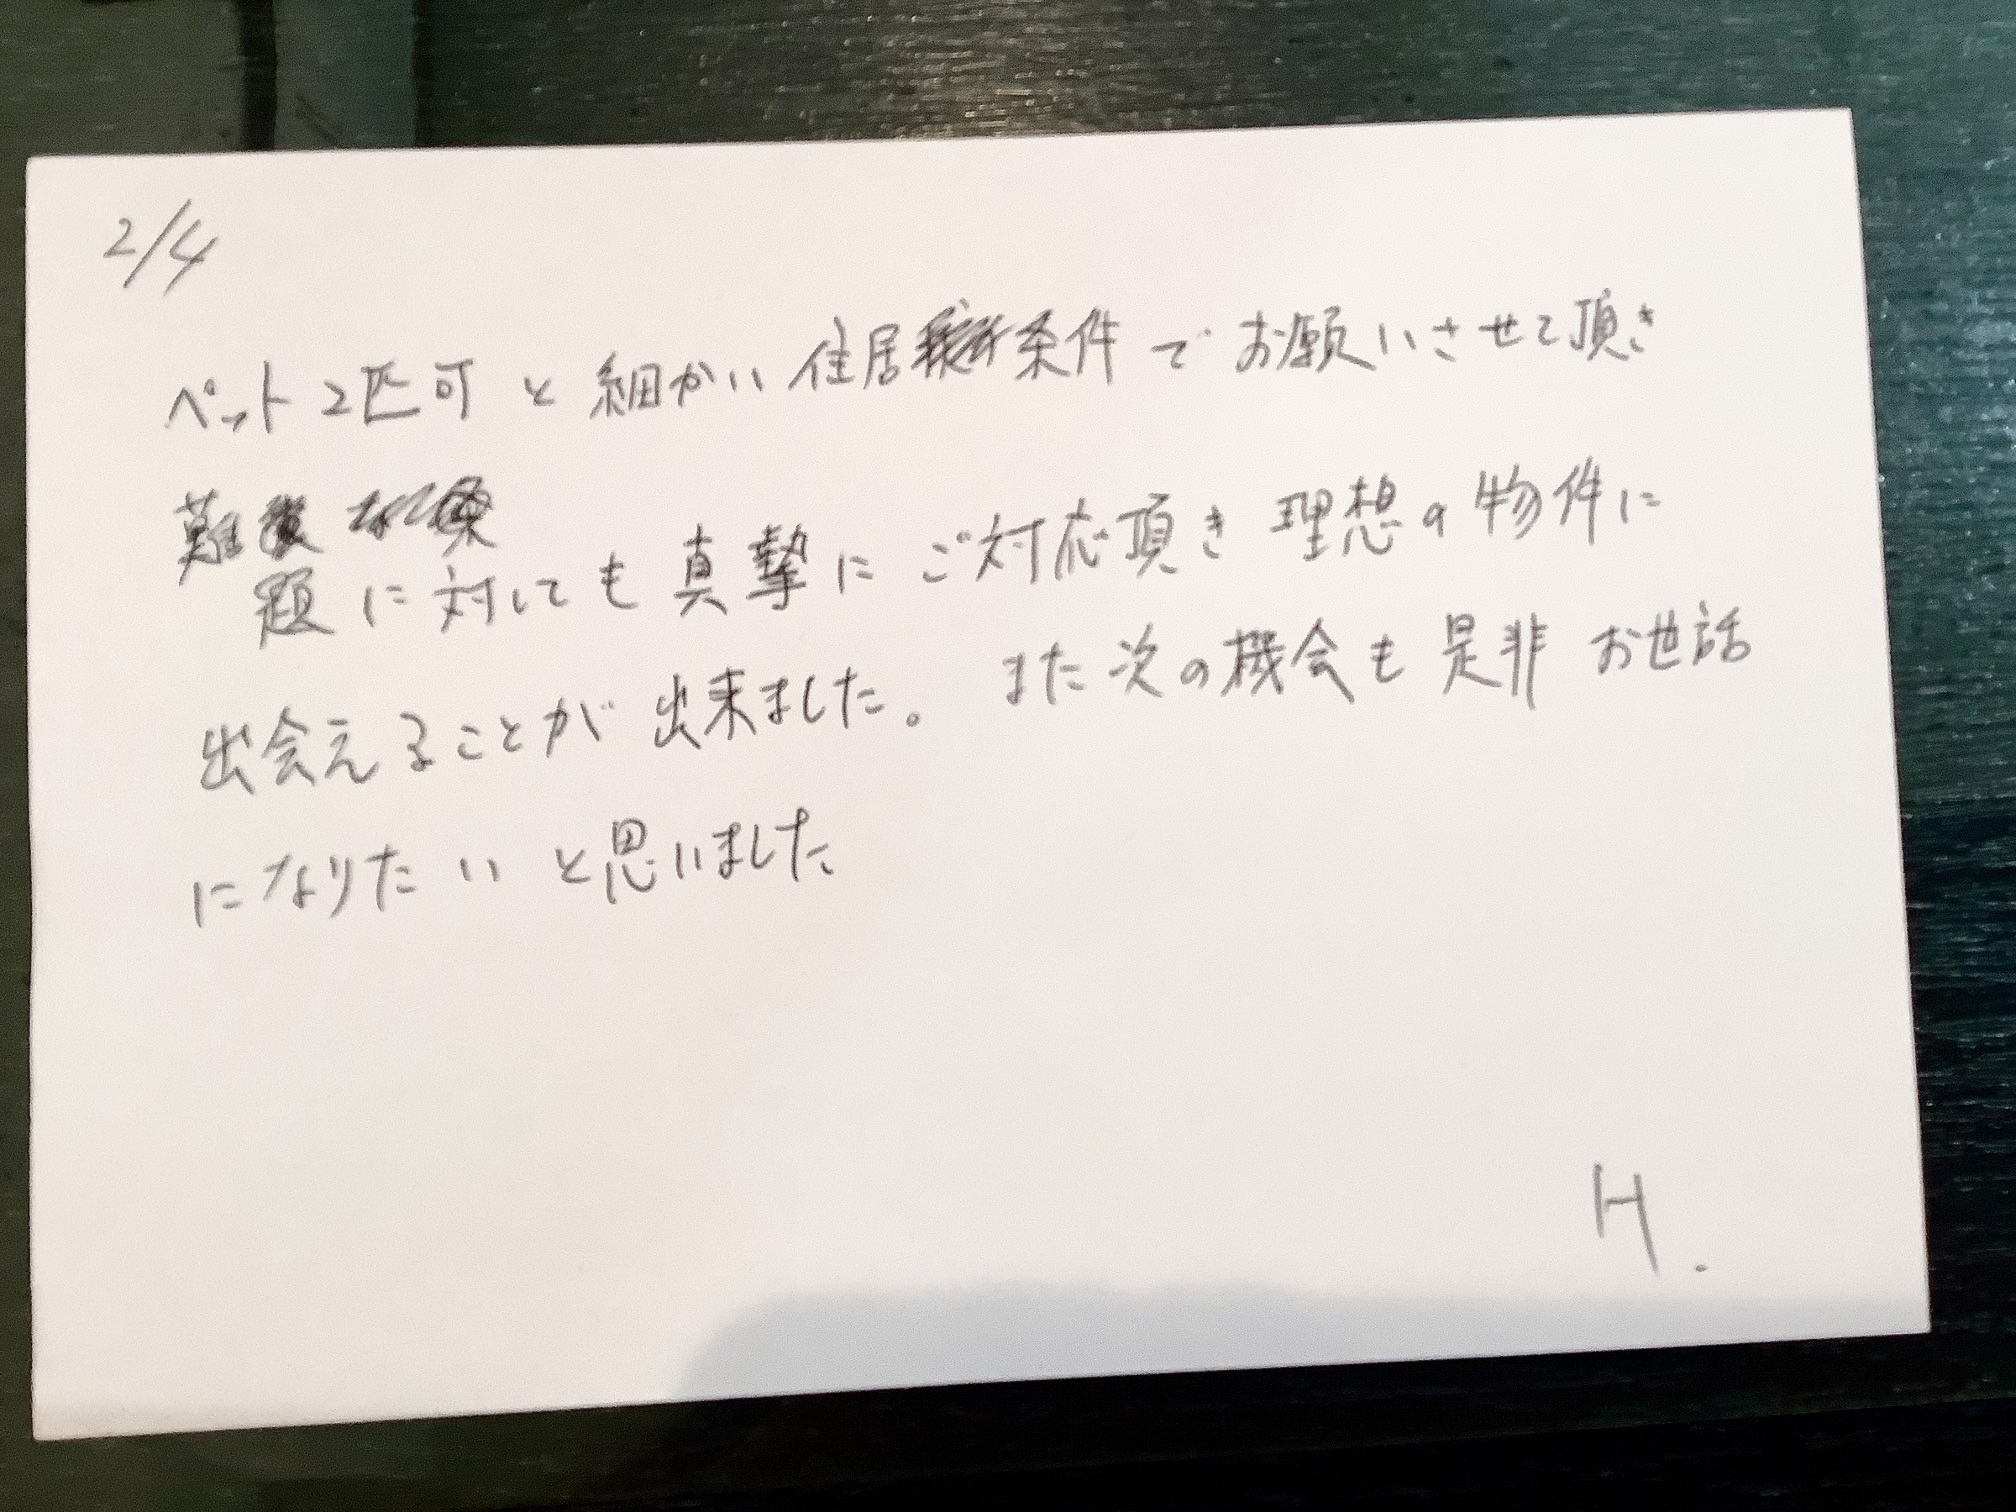 2/4
ペット2匹可と細かい住居条件でお願いさせて頂き
難題に対しても真摯にご対応頂き理想の物件に
出会えることが出来ました。また次の機会も是非お世話
になりたいと思いました
H.